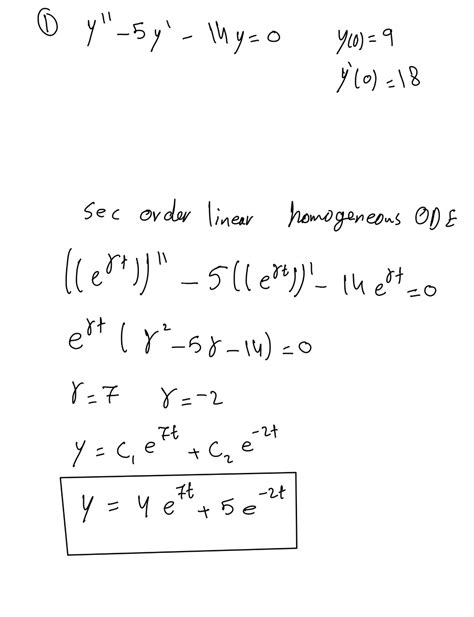 ① y'' - 5y' - 14y = 0 y(0) = 9
y'(0) = 18
Sec order linear homogeneous ODE
((e^{γt}))'' - 5((e^{γt}))' - 14 e^{γt} = 0
e^{γt} (γ² - 5γ - 14) = 0
γ = 7 γ = -2
y = C₁ e^{7t} + C₂ e^{-2t}
y = 4 e^{7t} + 5 e^{-2t}